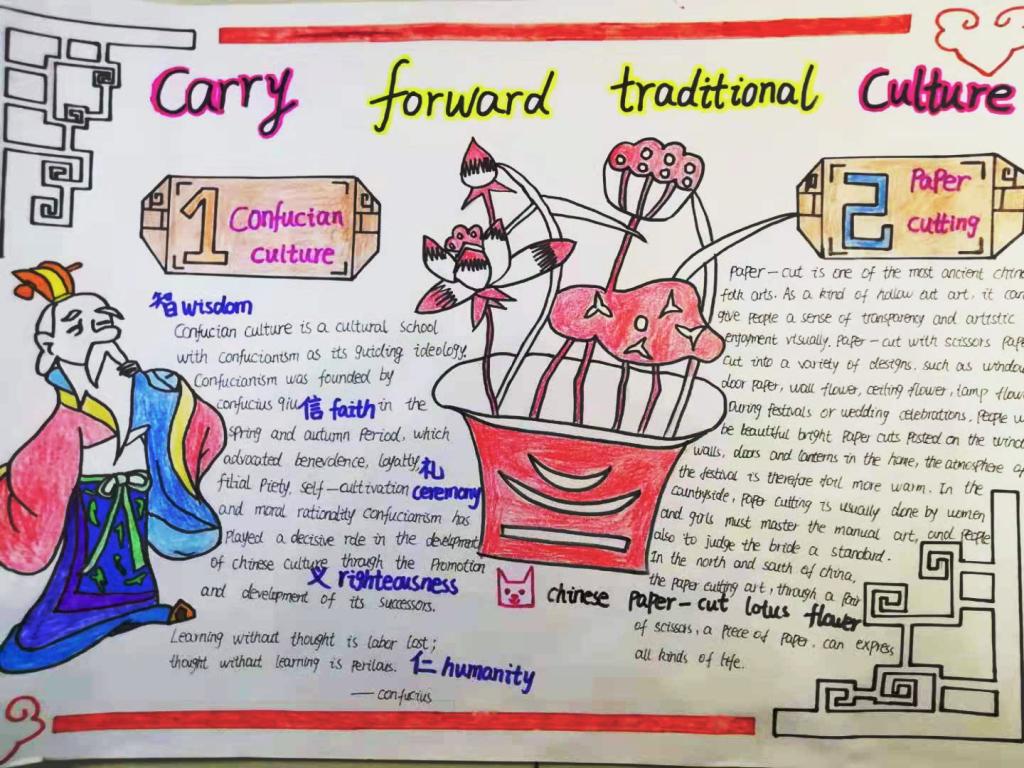 Carry forward traditional Culture
1 Confucian culture
智 wisdom
Confucian culture is a cultural school
with confucianism as its guiding ideology.
Confucianism was founded by
confucius qiu 信 faith in the
spring and autumn period, which
advocated benevolence, loyalty, 礼
filial piety, self-cultivation ceremony
and moral rationality confucianism has
played a decisive role in the development
of chinese culture through the promotion
义 righteousness
and development of its successors.
Learning without thought is labor lost;
thought without learning is perilous. 仁 humanity
— confucius
2 Paper cutting
Paper-cut is one of the most ancient
folk arts. As a kind of hollow out art, it can
give people a sense of transparency and artistic
enjoyment visually. Paper-cut with scissors
cut into a variety of designs, such as window
door paper, wall flower, ceiling flower, lamp
During festivals or wedding celebrations, people
be beautiful bright paper cuts posted on the
walls, doors and lanterns in the home, the atmosphere of
the festival is therefore foil more warm. In the
countryside, paper cutting is usually done by women
and girls must master the manual art, and people
also to judge the bride a standard.
In the north and south of china,
the paper cutting art, through a pair
chinese paper-cut lotus flower
of scissors, a piece of paper, can express
all kinds of life.